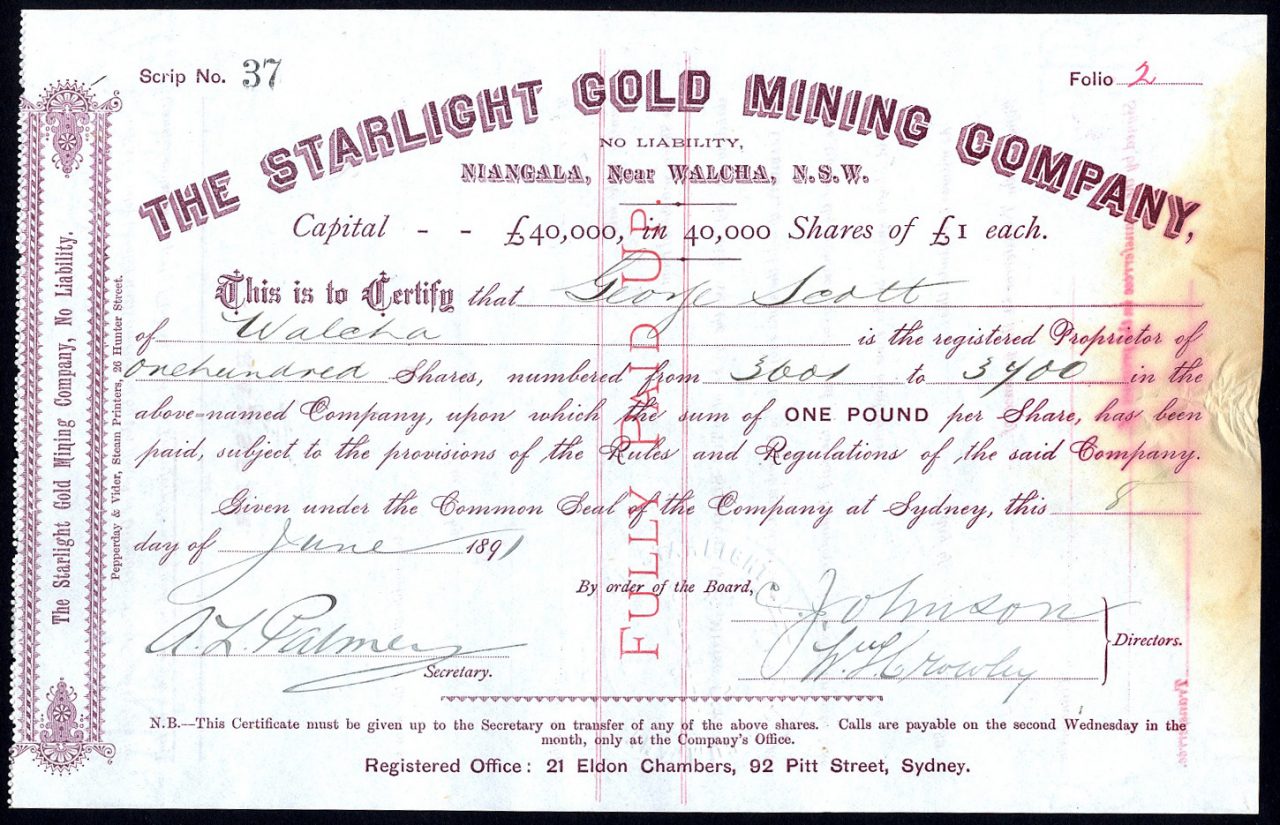 Scrip No. 37
Folio 2
THE STARLIGHT GOLD MINING COMPANY,
NO LIABILITY,
NIANGALA, Near WALCHA, N.S.W.
Capital - - £40,000, in 40,000 Shares of £1 each.
This is to Certify that George Scott
of Walcha is the registered Proprietor of
onehundred Shares, numbered from 3601 to 3700 in the
above-named Company, upon which the sum of ONE POUND per Share, has been
paid, subject to the provisions of the Rules and Regulations of the said Company.
Given under the Common Seal of the Company at Sydney, this 8
day of June 1891
By order of the Board,
C. Johnson
A. L. Palmer
Crowley
Directors.
Secretary.
N.B.—This Certificate must be given up to the Secretary on transfer of any of the above shares. Calls are payable on the second Wednesday in the
month, only at the Company's Office.
Registered Office: 21 Eldon Chambers, 92 Pitt Street, Sydney.
FULLY PAID UP.
The Starlight Gold Mining Company, No Liability.
Pepperday & Vider, Steam Printers, 26 Hunter Street.